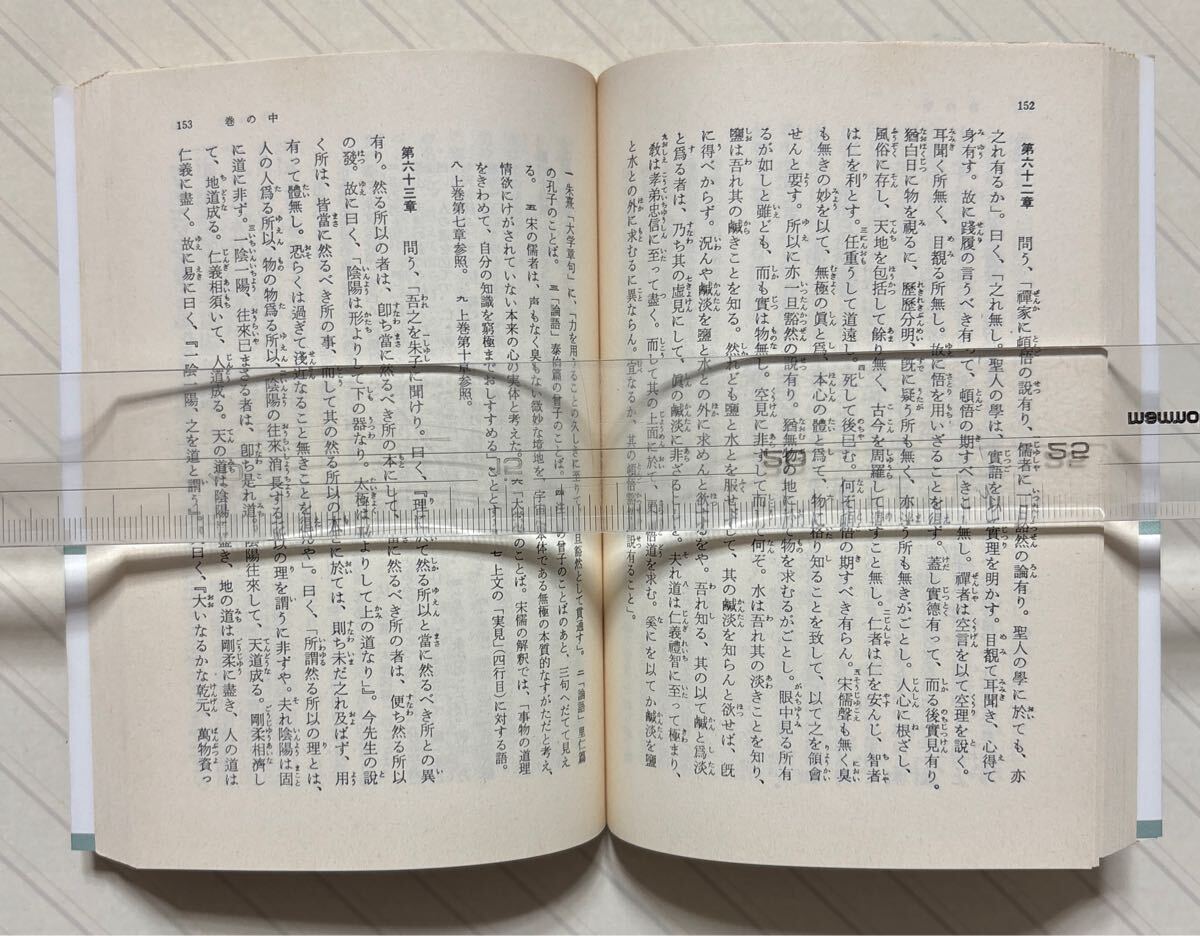 152
第六十二章 問う、「禪家に頓悟の説有り、儒者に一旦豁然の論有り。聖人の學に於ても、亦
之れ有るか」。曰く、「之れ無し。聖人の學は、實語を以て實理を明かす。目覩て耳聞き、心得て
身有す。故に踐履の言うべき有って、頓悟の期すべきこと無し。禪者は空言を以て空理を説く。
耳聞く所無く、目覩る所無し。故に悟を用いざることを得ず。蓋し實德有って、而る後實見有り。
猶白日に物を視るに、歷歷分明、既に疑う所も無く、亦
風俗に存し、天地を包括して餘り無く、古今を周羅して
は仁を利とす。任重うして道遠し。死して後已む。何ぞ
も無きの妙を以て、無極の眞と爲、本心の體と爲て、物に
せんと要す。所以に亦一旦豁然の説有り。猶無物の地に
るが如しと雖ども、而も實は物無し。空見に非ずして而
鹽は吾れ其の鹹きことを知る。然れども鹽と水とを服せずして、其の鹹淡を知らんと欲せば、既
に得べからず。況んや鹹淡を鹽と水との外に求めんと欲するをや。吾れ知る、其の以て鹹と爲淡
と爲る者は、乃ち其の虛見にして、眞の鹹淡に非ざることを。夫れ道は仁義禮智に至って極まり、
敎は孝弟忠信に至って盡く。而して其の上面に於て、更
と水との外に求むるに異ならん。宜なるか、其の頓悟
一 朱熹「大学章句」に、「力を用うることの久しきに至りて
の孔子のことば。 三「論語」泰伯篇の曾子のことば。
る。 五 宋の儒者は、声もなく臭もない微妙な境地を、宇宙の本体である無極の本質的なすがただと考え、
情欲にけがされていない本来の心の実体と考えた。 六「大学」のことば。宋儒の解釈では、「事物の道理
をきわめて、自分の知識を窮極までおしすすめる」こととする。 七 上文の「実見」(四行目)に対する語。
八 上巻第七章参照。 九 上巻第十章参照。
153 巻の中
第六十三章 問う、「吾之を朱子に聞けり。曰く、『理に於て然る所以と當に然るべき所との異
有り。然る所以の者は、卽ち當に然るべき所の本にして、當に然るべき所の者は、便ち然る所以
の發。故に曰く、「陰陽は形よりして下の器なり。太極は形よりして上の道なり』。今先生の説
く所は、皆當に然るべき所の事、而して其の然る所以の本に於ては、則ち未だ之れ及ばず、用
有って體無し。恐らくは過ぎて淺近なること無きことを得んや」。曰く、「所謂然る所以の理とは、
人の人爲る所以、物の物爲る所以、陰陽の往來消長する所以の理を謂うに非ずや。夫れ陰陽は固
に道に非ず。一陰一陽、往來已まざる者は、卽ち是れ道。陰陽往來して、天道成る。剛柔相濟し
て、地道成る。仁義相須いて、人道成る。天の道は陰陽に盡き、地の道は剛柔に盡き、人の道は
仁義に盡く。故に易に曰く、『一陰一陽、之を道と謂う』。曰く、『大いなるかな乾元、萬物資っ
52